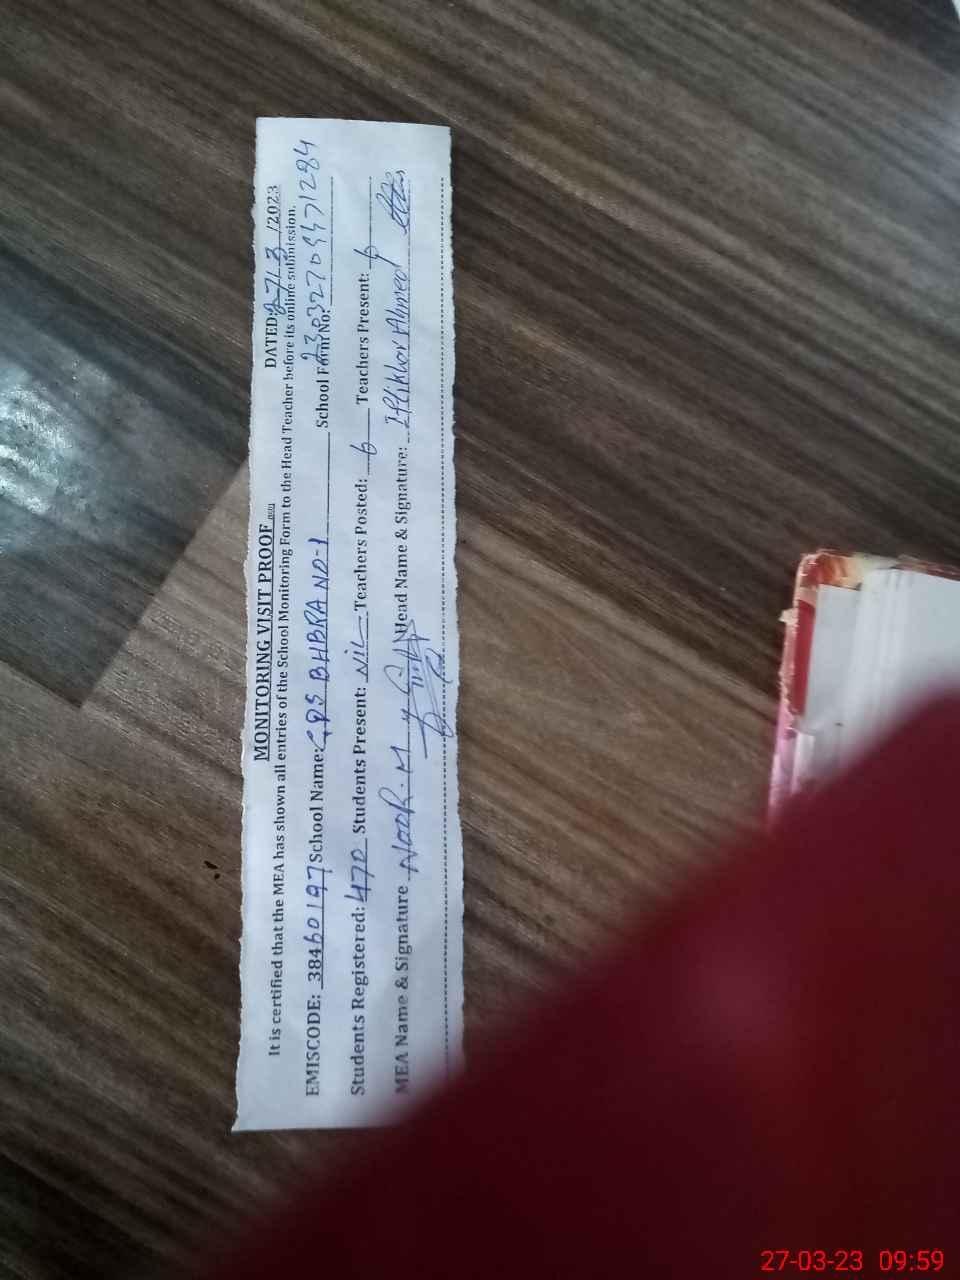 MONITORING VISIT PROOF
DATED: 27/3/2023
It is certified that the MEA has shown all entries of the School Monitoring Form to the Head Teacher before its online submission.
EMISCODE: 38460197 School Name: GPS BHBRA NO-1 School Form No:
Students Registered: 470 Students Present: NIL Teachers Posted: 6 Teachers Present: 6
MEA Name & Signature NOOR. M Head Name & Signature: Iftikhar Ahmed
27-03-23 09:59